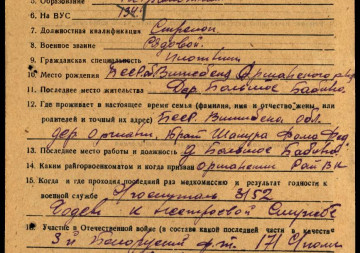 5. Образование
6. На ВУС 134
7. Должностная квалификация Стрелок
8. Военное звание Рядовой.
9. Гражданская специальность плотник
10. Место рождения БССР Витебская Оршанского
11. Последнее место жительства Дер. Большое Бабино
12. Где проживает в настоящее время семья (фамилия, имя и отчество жены или
родителей и точный их адрес) Бсср Витебская обл.
дер. Брат
13. Последнее место работы и должность д Большое Бабино
14. Каким райгорвоенкоматом и когда призван Оршанским Рай В к
15. Когда и где проходил последний раз медкомиссию и результат годности к
военной службе 3152
Годен к нестроевой службе
16. Участие в Отечественной войне (в составе какой последней части в качестве
3й Белоруский ф.т. 171 с/полк